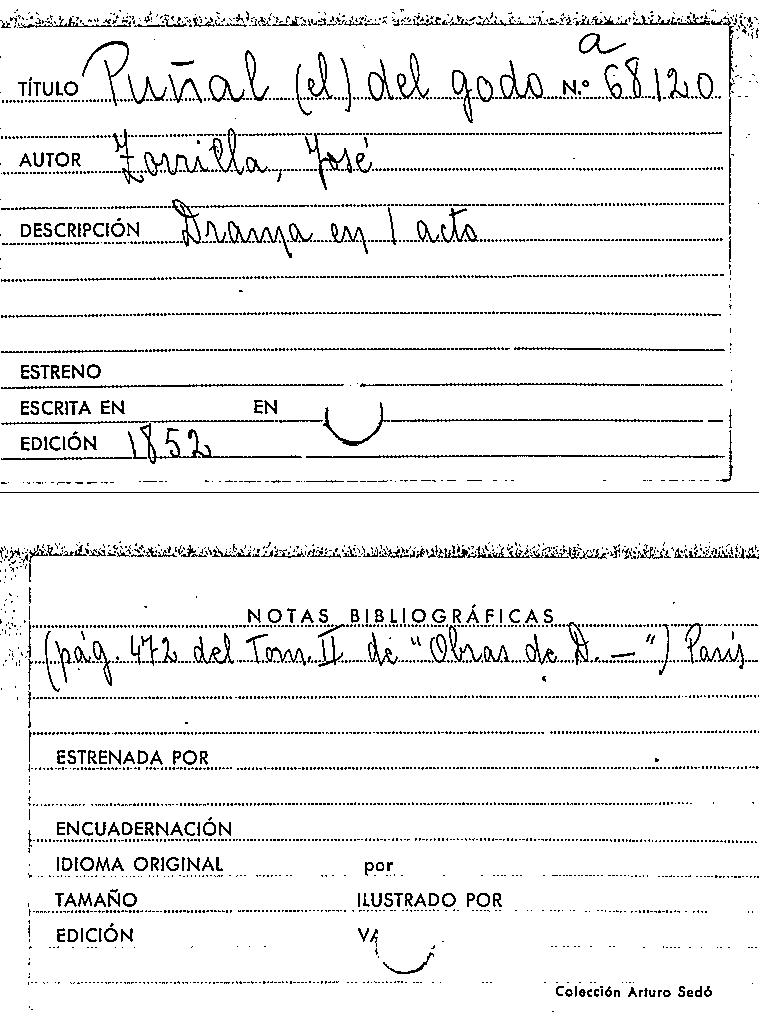 a
TÍTULO Puñal (el) del godo N.º 68120
AUTOR Zorrilla, José
DESCRIPCIÓN Drama en 1 acto
ESTRENO
ESCRITA EN EN
EDICIÓN 1852
NOTAS BIBLIOGRÁFICAS
(pág. 472 del Tom. II de "Obras de D. —") París
ESTRENADA POR
ENCUADERNACIÓN
IDIOMA ORIGINAL por
TAMAÑO ILUSTRADO POR
EDICIÓN
Colección Arturo Sedó